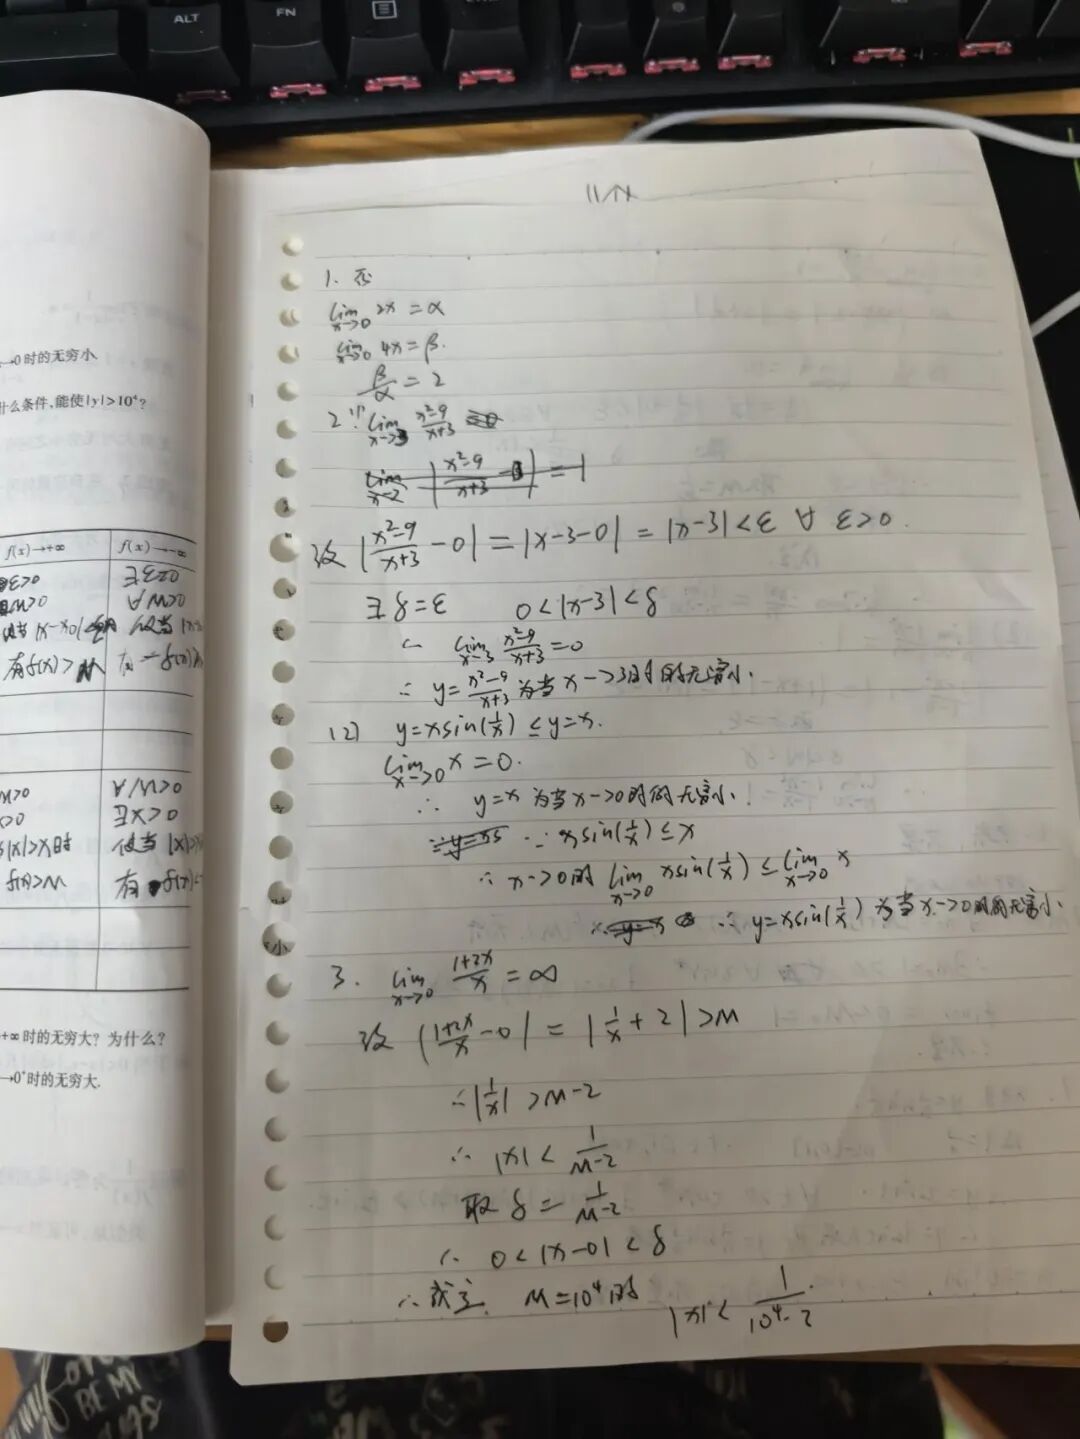 ALT
FN
→0时的无穷小.
什么条件,能使|y|>10⁴?
f(x)→+∞ f(x)→-∞
ε>0 ∃ε>0
M>0 ∀M>0
当|x-x₀|< 使当|x-
有f(x)>M 有-f(x)
M>0 ∀M>0
>0 ∃X>0
|x|>X时 使当|x|>
f(x)>M 有 f(x)<
小
+∞时的无穷大? 为什么?
→0⁺时的无穷大.
1. 否
lim x→0 2x=α
lim x→0 4x=β.
β/α=2
2.(1) lim x→3 (x²-9)/(x+3)
lim x→2 |(x²-9)/(x+3) - 3|=1
设|(x²-9)/(x+3) -0|=|x-3-0|=|x-3|<ε ∀ ε>0.
∃δ=ε 0<|x-3|<δ
∴ lim x→3 (x²-9)/(x+3)=0
∴ y=(x²-9)/(x+3)为当x->3时的无穷小.
(2) y=xsin(1/x)≤y=x.
lim x→0 x=0.
∴ y=x 为当x->0时的无穷小.
∵ xsin(1/x)≤x
∴ x->0时 lim x→0 xsin(1/x)≤lim x→0 x
∴ y=xsin(1/x) 为当x->0时的无穷小.
3. lim x→0 (1+2x)/x=∞
设 |(1+2x)/x -0|=|1/x+2|>M
∴|1/x|>M-2
∴ |x|<1/(M-2)
取δ=1/(M-2)
∴ 0<|x-0|<δ
∴成立. M=10⁴时 |x|<1/(10⁴-2)
BE MY